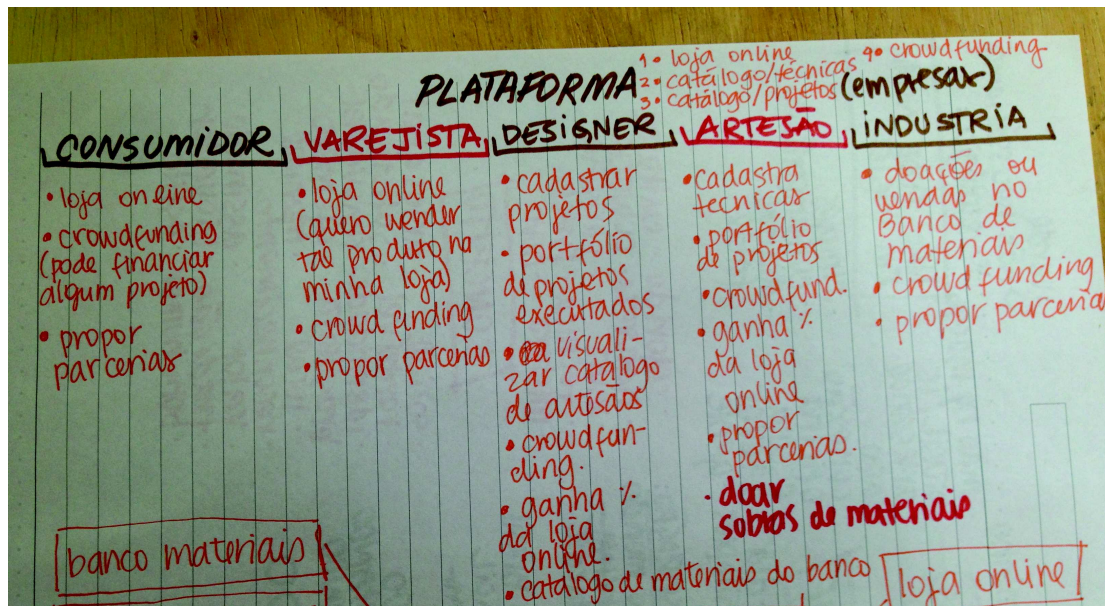 1. loja online
4. crowdfunding
PLATAFORMA
2. catálogo/técnicas
3. catálogo/projetos
(empresas)
CONSUMIDOR
• loja online
• crowdfunding
(pode financiar
algum projeto)
• propor
parcerias
VAREJISTA
• loja online
(quero vender
tal produto na
minha loja)
• crowd funding
• propor parcerias
DESIGNER
• cadastrar
projetos
• portfólio
de projetos
executados
• visuali-
zar catalogo
de artesãos
• crowdfun-
ding.
• ganha %
da loja
online.
• catálogo de materiais do banco
ARTESÃO
• cadastra
tecnicas
• portfólio
de projetos
• crowdfund.
• ganha %
da loja
online
• propor
parcerias.
• doar
sobras de materiais
INDUSTRIA
• doações ou
vendas no
Banco de
materiais
• crowd funding
• propor parceria
banco materiais
loja online